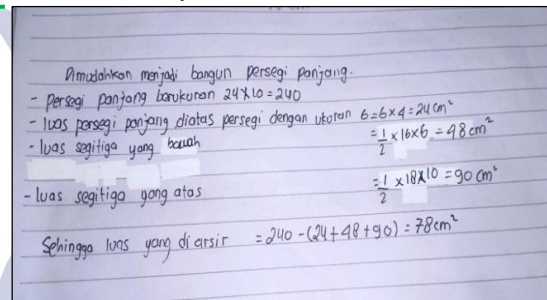 Dimudahkan menjadi bangun persegi panjang.
- persegi panjang barukuran 24x10 = 240
- luas persegi panjang diatas persegi dengan ukuran 6 = 6x4 = 24 cm²
- luas segitiga yang bawah = 1/2 x 16 x 6 = 48 cm²
- luas segitiga yang atas = 1/2 x 18 x 10 = 90 cm²
Sehingga luas yang diarsir = 240 - (24 + 48 + 90) = 78 cm²